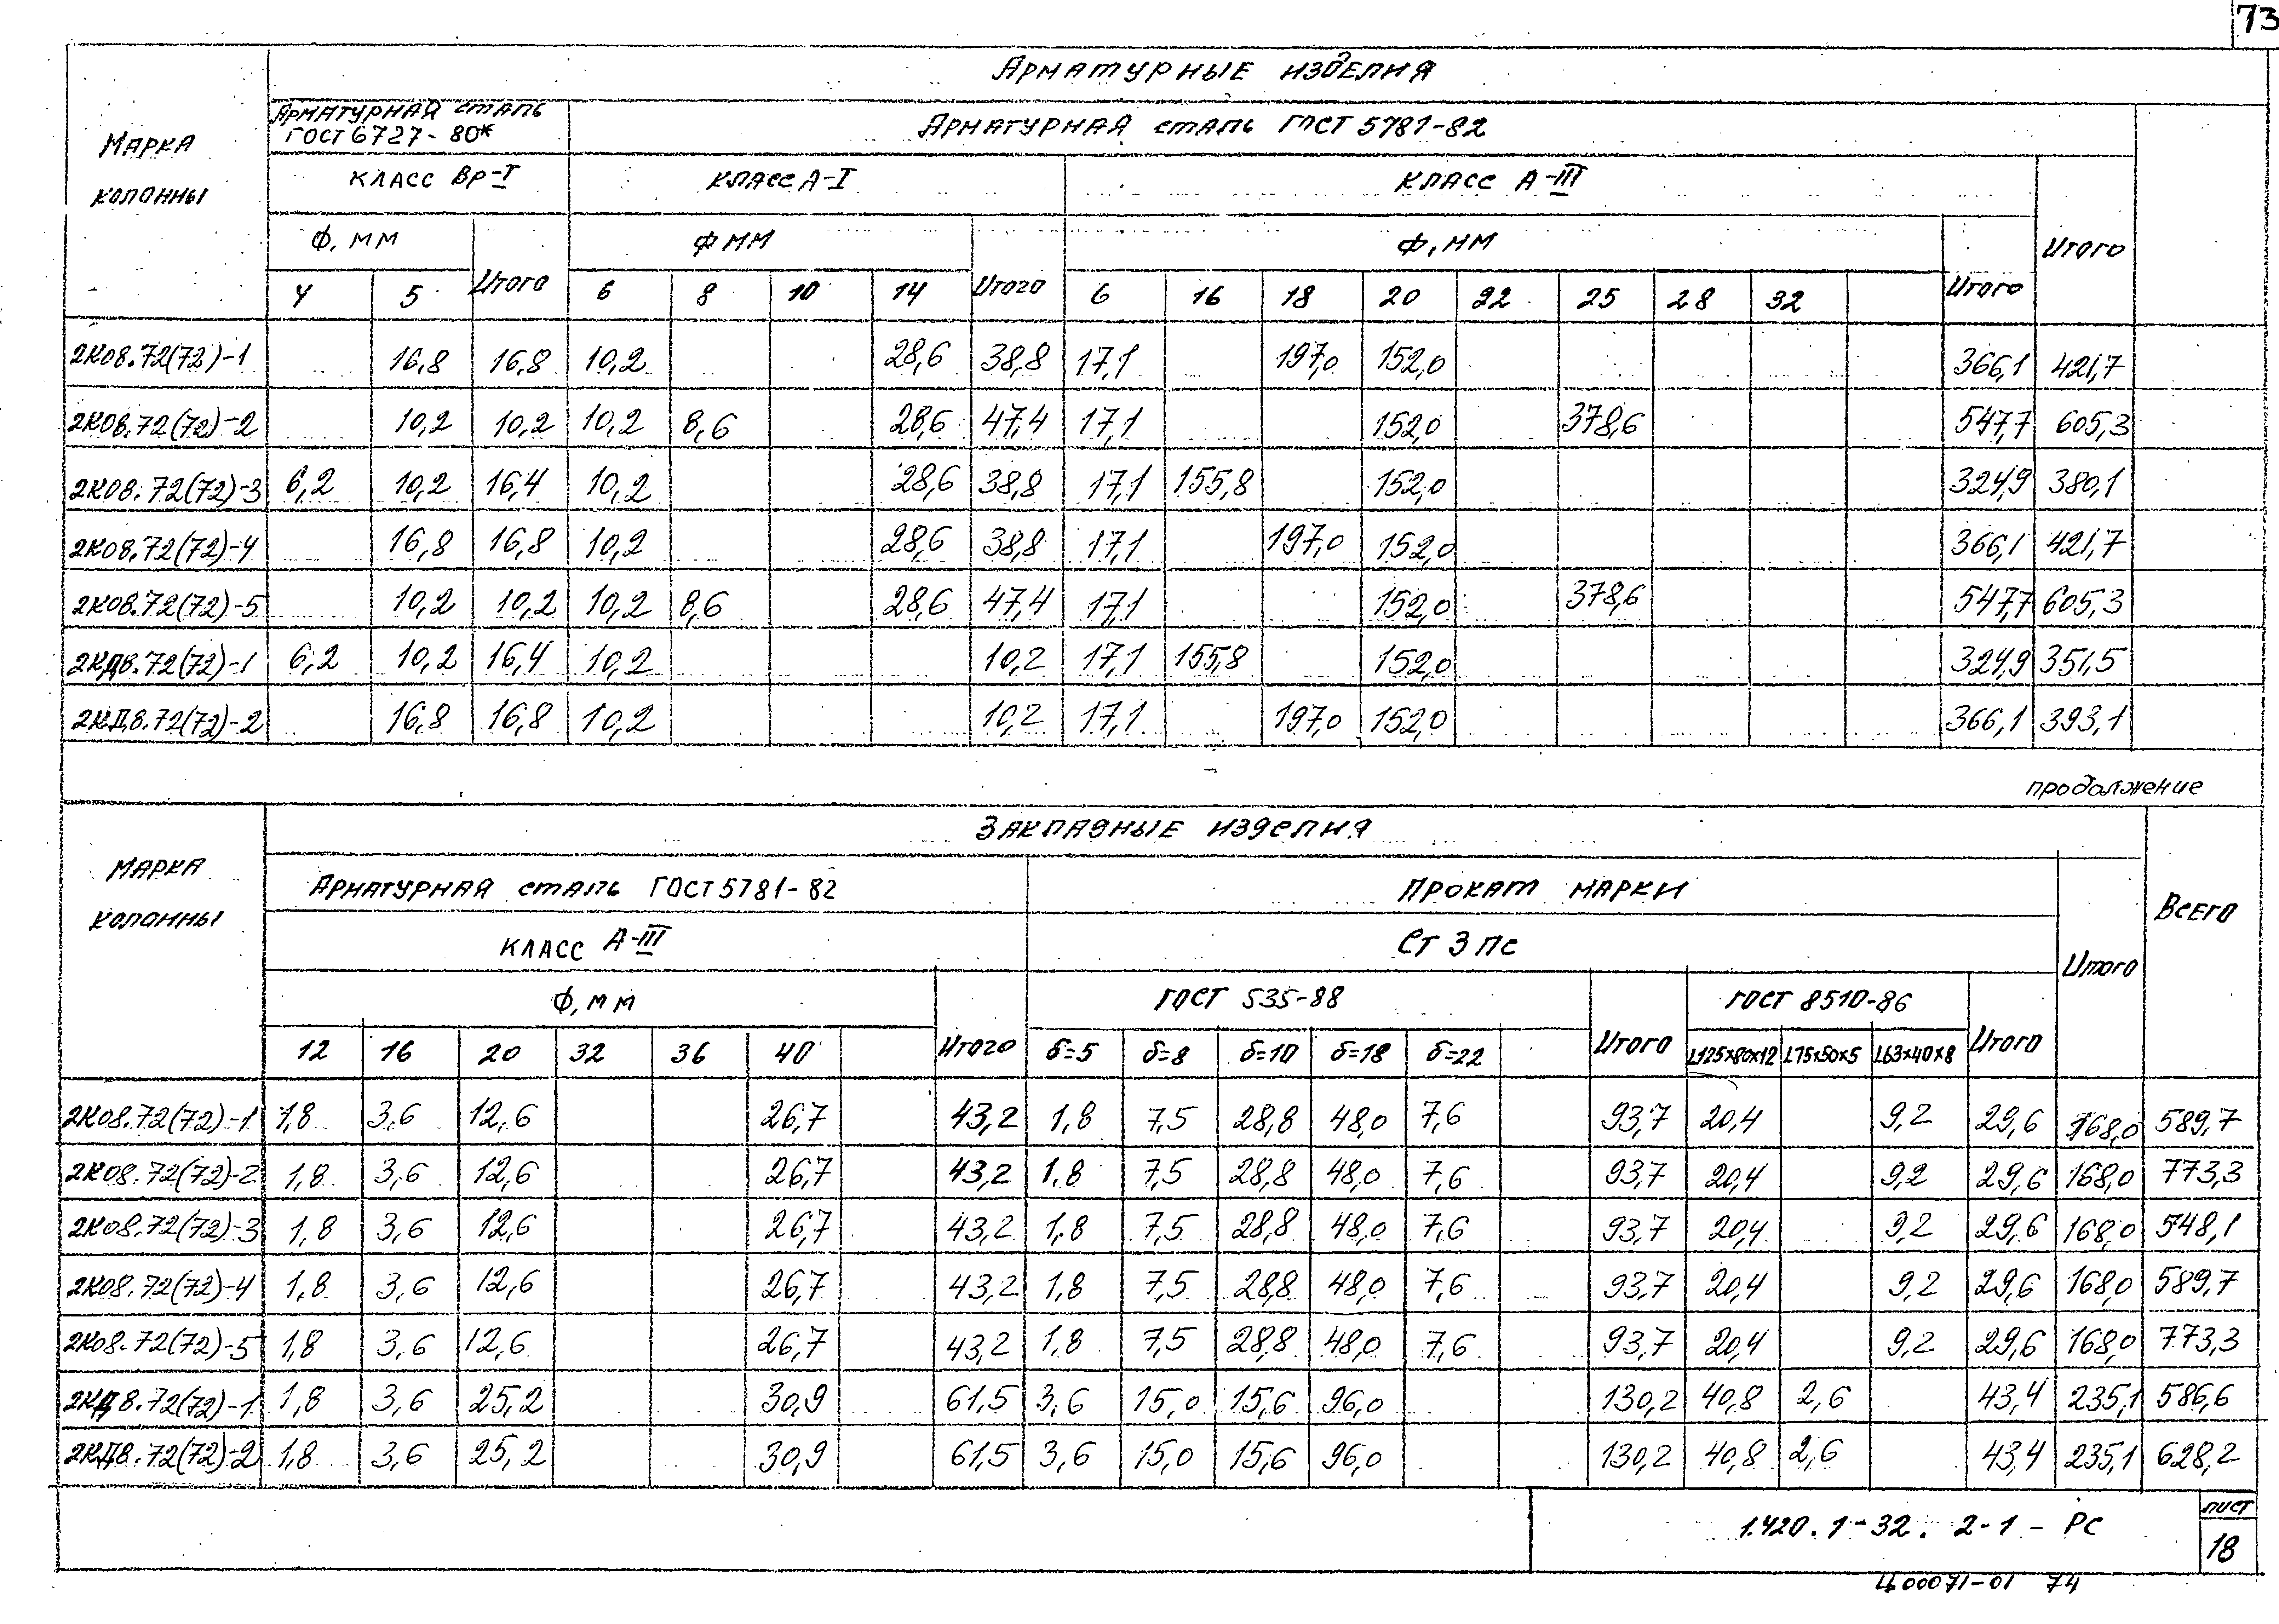 73
Арматурные изделия
Марка колонны
Арматурная сталь ГОСТ 6727-80*
Арматурная сталь ГОСТ 5781-82
класс Вр-I
класс А-I
класс А-III
Итого
Ф, мм
Итого
Ф мм
Итого
Ф, мм
Итого
4 5 6 8 10 14 6 16 18 20 22 25 28 32
2КО8.72(72)-1 16,8 16,8 10,2 28,6 38,8 17,1 197,0 152,0 366,1 421,7
2КО8.72(72)-2 10,2 10,2 10,2 8,6 28,6 47,4 17,1 152,0 378,6 547,7 605,3
2КО8.72(72)-3 6,2 10,2 16,4 10,2 28,6 38,8 17,1 155,8 152,0 324,9 380,1
2КО8.72(72)-4 16,8 16,8 10,2 28,6 38,8 17,1 197,0 152,0 366,1 421,7
2КО8.72(72)-5 10,2 10,2 10,2 8,6 28,6 47,4 17,1 152,0 378,6 547,7 605,3
2КД8.72(72)-1 6,2 10,2 16,4 10,2 10,2 17,1 155,8 152,0 324,9 351,5
2КД8.72(72)-2 16,8 16,8 10,2 10,2 17,1 197,0 152,0 366,1 393,1
продолжение
Закладные изделия
Марка колонны
Арматурная сталь ГОСТ 5781-82
Прокат марки
Всего
класс А-III
Ст 3 пс
Итого
Ф, мм
Итого
ГОСТ 535-88
Итого
ГОСТ 8510-86
Итого
12 16 20 32 36 40 δ=5 δ=8 δ=10 δ=18 δ=22 L125х80х12 L75х50х5 L63х40х8
2КО8.72(72)-1 1,8 3,6 12,6 26,7 43,2 1,8 7,5 28,8 48,0 7,6 93,7 20,4 9,2 29,6 168,0 589,7
2КО8.72(72)-2 1,8 3,6 12,6 26,7 43,2 1,8 7,5 28,8 48,0 7,6 93,7 20,4 9,2 29,6 168,0 773,3
2КО8.72(72)-3 1,8 3,6 12,6 26,7 43,2 1,8 7,5 28,8 48,0 7,6 93,7 20,4 9,2 29,6 168,0 548,1
2КО8.72(72)-4 1,8 3,6 12,6 26,7 43,2 1,8 7,5 28,8 48,0 7,6 93,7 20,4 9,2 29,6 168,0 589,7
2КО8.72(72)-5 1,8 3,6 12,6 26,7 43,2 1,8 7,5 28,8 48,0 7,6 93,7 20,4 9,2 29,6 168,0 773,3
2КД8.72(72)-1 1,8 3,6 25,2 30,9 61,5 3,6 15,0 15,6 96,0 130,2 40,8 2,6 43,4 235,1 586,6
2КД8.72(72)-2 1,8 3,6 25,2 30,9 61,5 3,6 15,0 15,6 96,0 130,2 40,8 2,6 43,4 235,1 628,2
1.420.1-32. 2-1 - РС
лист
18
Ц00071-01 74